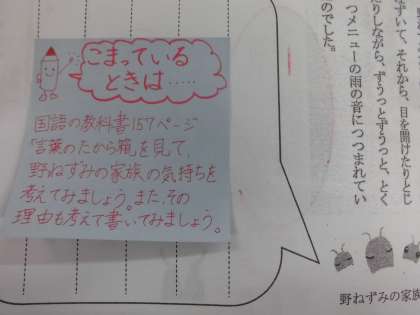 こまっている
ときは……
国語の教科書157ページ
「言葉のたから箱」を見て、
野ねずみの家族の気持ちを
考えてみましょう。また、その
理由も考えて書いてみましょう。
ずいて、それから、目を開けたりとじ
たりしながら、ずうっとずうっと、とく
つメニューの雨の音につつまれてい
のでした。
野ねずみの家族